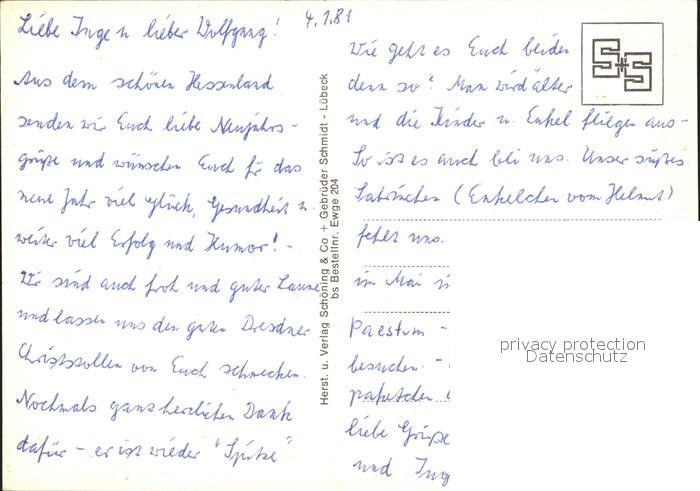 4.1.81
Liebe Inge u lieber Wolfgang!
Aus dem schönen Hessenland
senden wir Euch liebe Neujahrs-
grüße und wünschen Euch für das
neue Jahr viel Glück, Gesundheit u.
weiter viel Erfolg und Humor! -
Wir sind auch froh und guter Laune
und lassen uns den guten Dresdner
Christstollen von Euch schmecken.
Nochmals ganz herzlichen Dank
dafür - er ist wieder "Spitze"
Herst. u. Verlag Schöning & Co + Gebrüder Schmidt - Lübeck
bs Bestellnr. Ewge 204
Wie geht es Euch beiden
denn so? Man wird älter
und die Kinder u. Enkel fliegen aus-
So ist es auch bei uns. Unser süßes
(Enkelchen vom Helmut)
fehlt uns.
im Mai
Paestum -
besuchen -
liebe Grüße
und Ing
S+S
privacy protection
Datenschutz